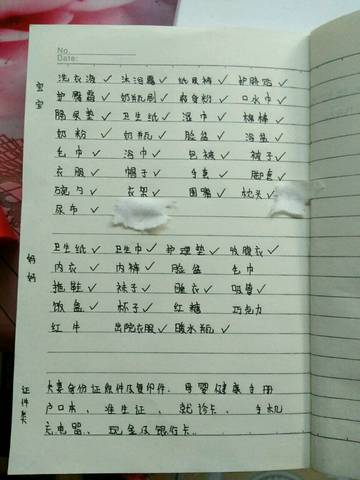 No.
Date
宝宝
洗衣液✓ 沐浴露✓ 纸尿裤✓ 护脐贴✓
护臀霜✓ 奶瓶刷✓ 爽身粉✓ 口水巾✓
隔尿垫✓ 卫生纸✓ 浴巾✓ 棉裤✓
奶粉✓ 奶瓶✓ 脸盆✓ 浴盆✓
毛巾✓ 浴巾✓ 包被✓ 被子✓
衣服✓ 帽子✓ 手套✓ 脚套✓
碗勺✓ 衣架✓ 围嘴✓ 枕头✓
尿布✓
妈妈
卫生纸✓ 卫生巾✓ 护理垫✓ 收腹衣✓
内衣✓ 内裤✓ 脸盆 毛巾
拖鞋✓ 袜子✓ 睡衣✓ 吸管✓
饭盒✓ 杯子✓ 红糖 巧克力
红牛 出院衣服✓ 暖水瓶✓
证件类
夫妻身份证原件及复印件. 母婴健康手册
户口本、准生证、就诊卡、手机
充电器、现金及银行卡.